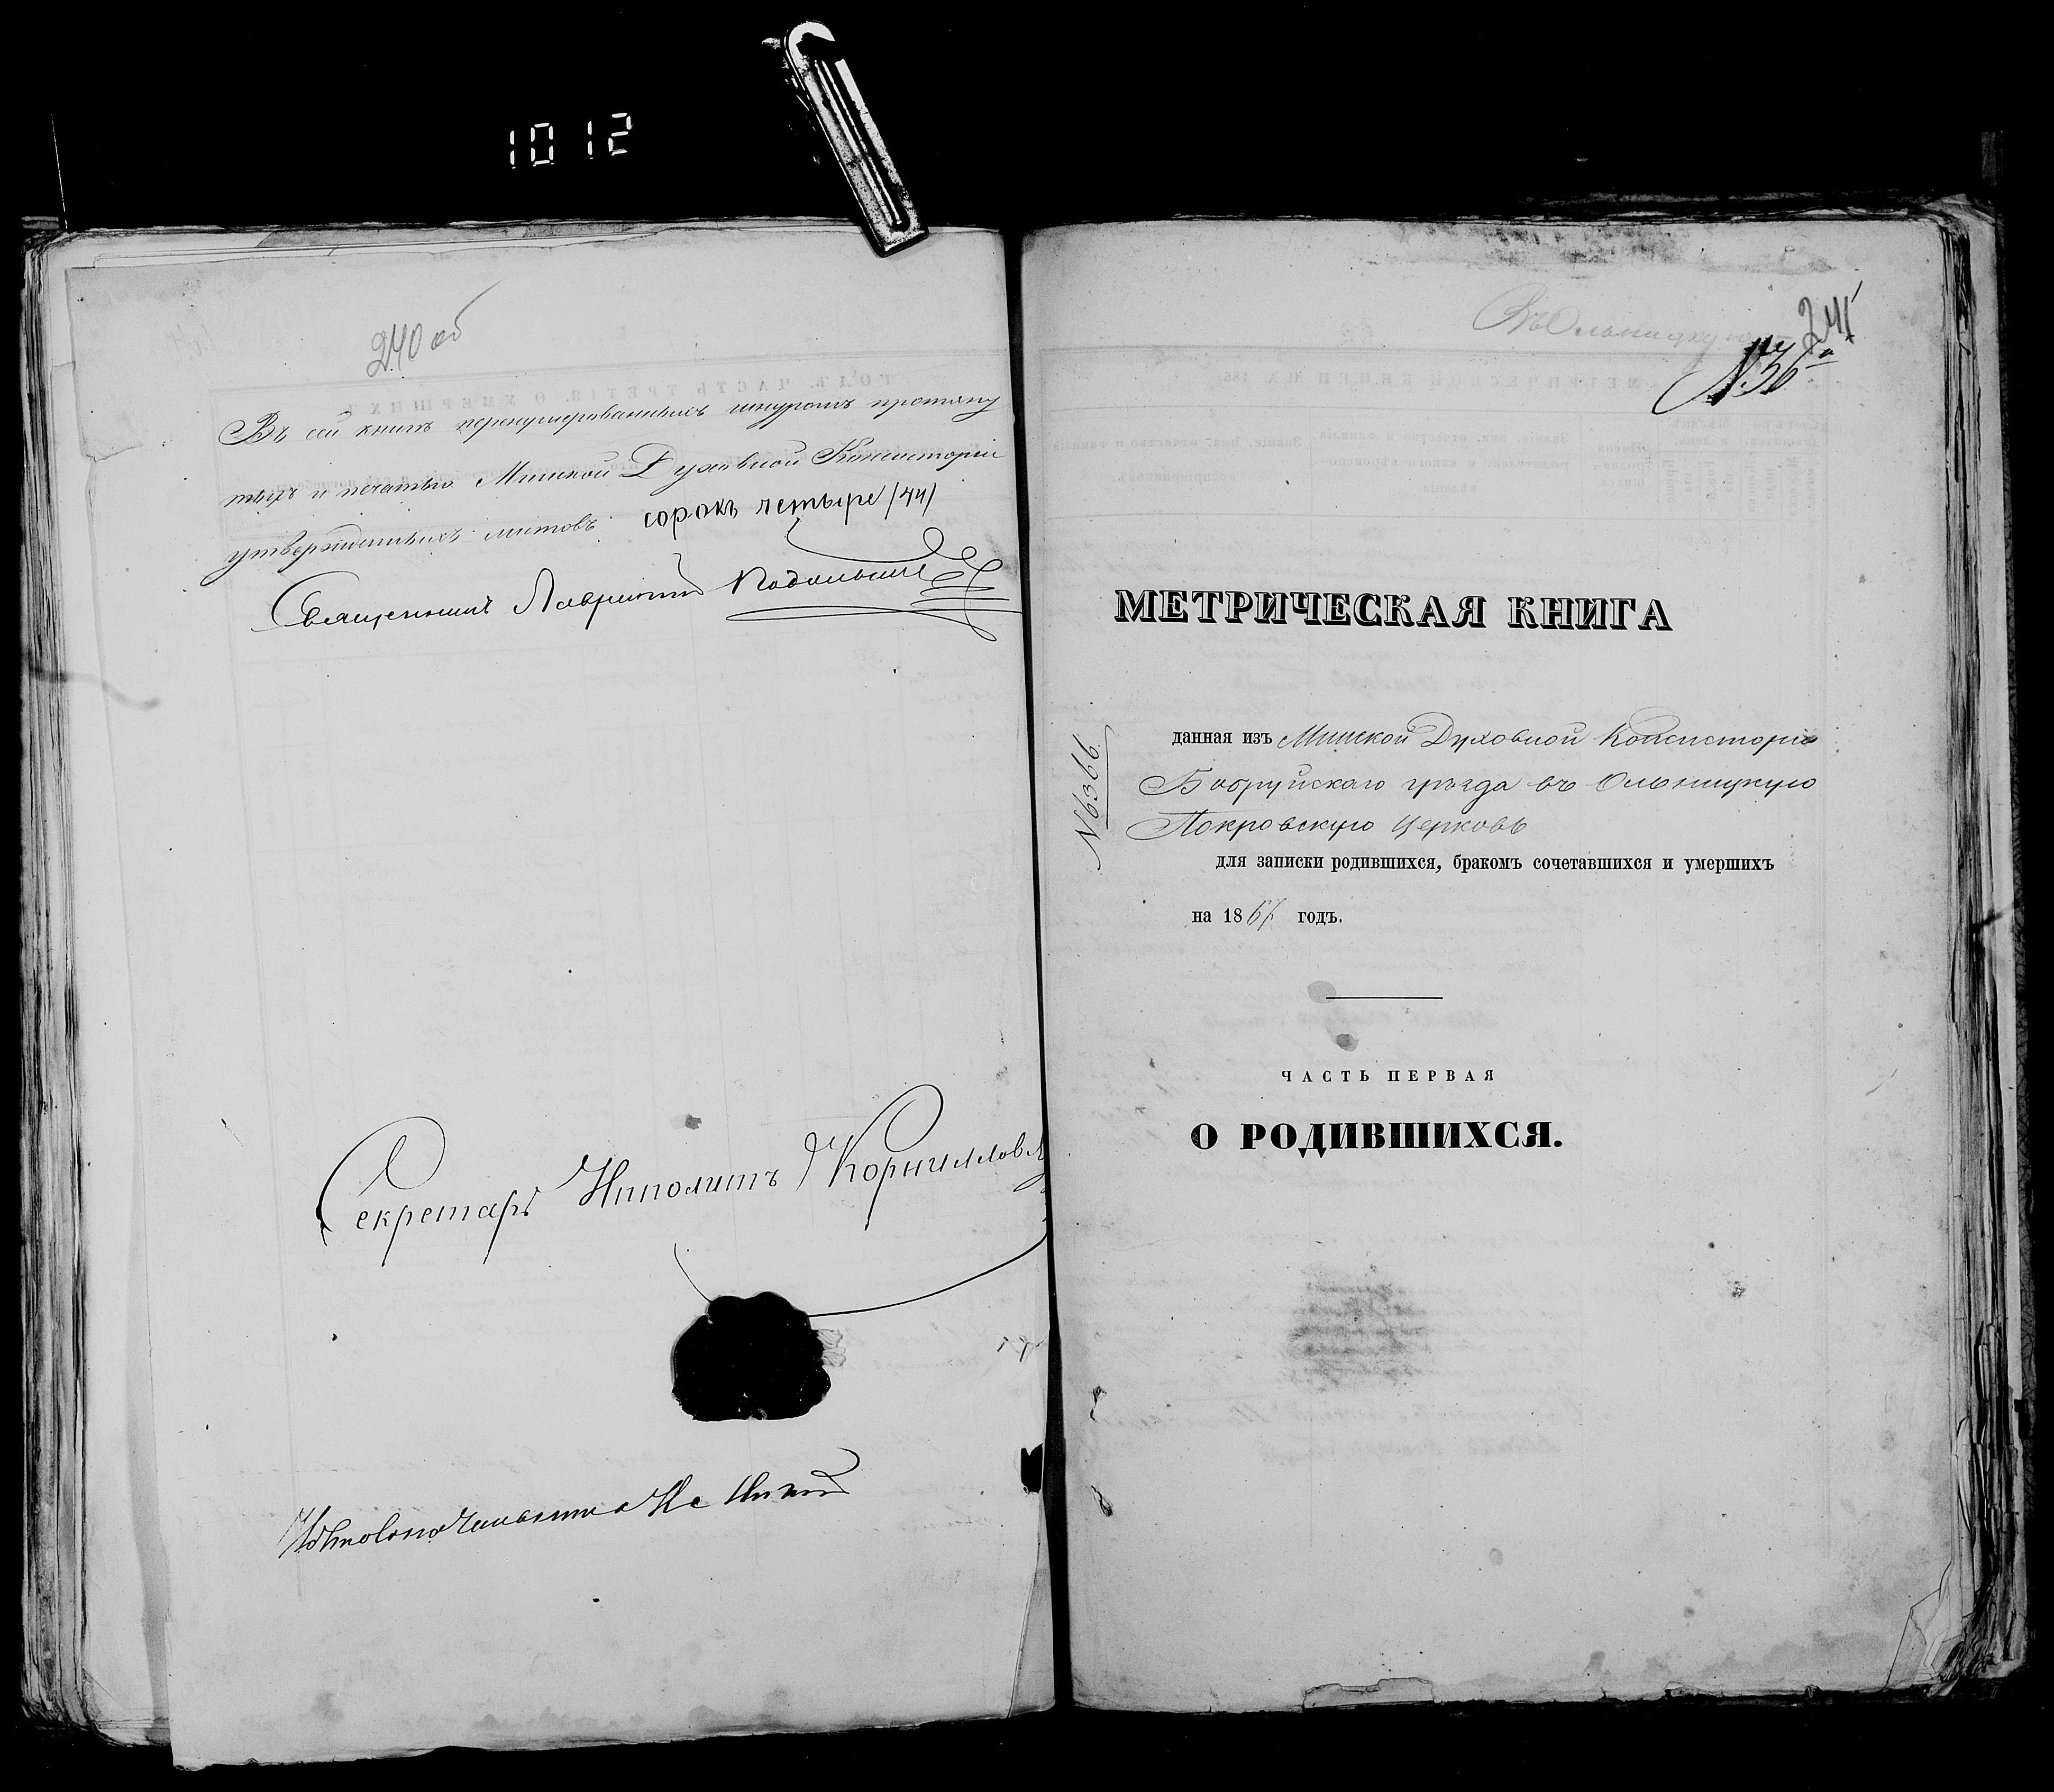 1012
240 об
Въ сей книгѣ перенумерованныхъ шнуромъ протяну
тыхъ и печатью Минской Духовной Консисторіи
утвержденныхъ листовъ сорокъ четыре /44/
Священникъ Лаврентій
Секретарь Ипполитъ Корниллов
241
№36
МЕТРИЧЕСКАЯ КНИГА
№6366
данная изъ Минской Духовной Консисторіи
Бобруйскаго уѣзда въ Ольницкую
Покровскую церковь
для записки родившихся, бракомъ сочетавшихся и умершихъ
на 1867 годъ.
ЧАСТЬ ПЕРВАЯ
О РОДИВШИХСЯ.